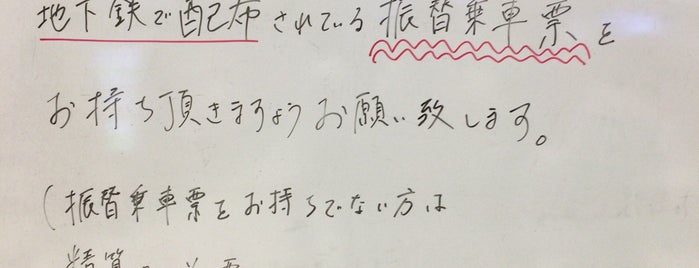 地下鉄で配布されている振替乗車票を
お持ち頂きますようお願い致します。
(振替乗車票をお持ちでない方は
精算